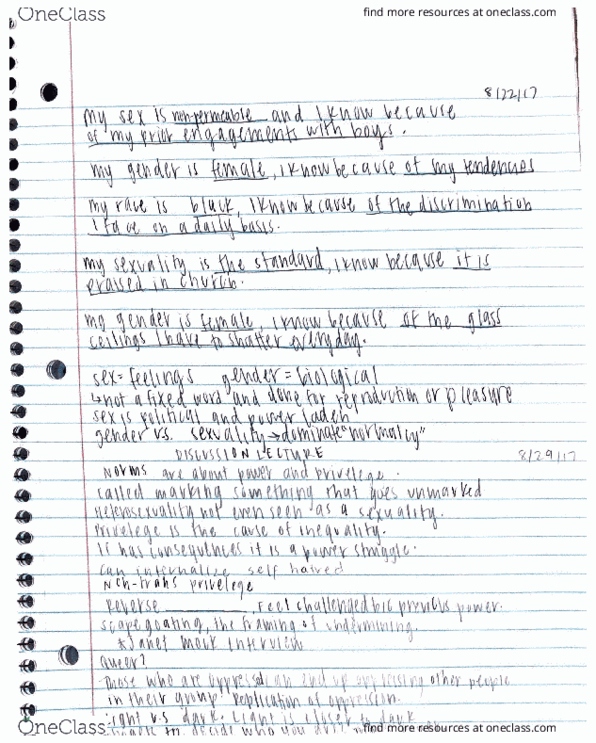 OneClass
find more resources at oneclass.com
8/22/17
my sex is non-permeable and I know because
of my prior engagements with boys.
my gender is female, I know because of my tendencies
my race is black, I know because of the discrimination
I face on a daily basis.
my sexuality is the standard, I know because it is
praised in church.
my gender is female, I know because of the glass
ceilings I have to shatter everyday.
sex = feelings gender = biological
↳ not a fixed word and done for reproduction or pleasure
sex is political and power laden
gender vs. sexuality → dominate "normalcy"
DISCUSSION LECTURE
8/29/17
Norms are about power and privelege.
called marking something that goes unmarked
Heterosexuality not even seen as a sexuality.
Privelege is the cause of inequality.
It has consequences it is a power struggle.
can internalize self hatred
Non-trans privelege
Reverse ________, feel challenged b/c previous power.
scapegoating, the framing of undermining.
*Janet Mock Interview
Queer?
Those who are oppressed can end up oppressing other people
in their group. Replication of oppression.
Light v.s dark. Light is closer to dark
OneClass
find more resources at oneclass.com